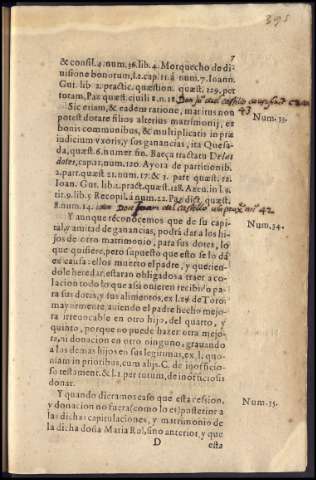 395
7
& consil. 4. num. 36. lib. 4. Morquecho de di-
uisione bonorum, l. 2. cap. 11. á num. 7. Ioann.
Gut. lib. 2. practic. quæstion. quæst. 129. per
totam, Paz quæst. ciuili 1. n. 18.
43
Num. 33.
Sic etiam, & eadem ratione, maritus non
potest dotare filios alterius matrimonij, ex
bonis communibus, & multiplicatis in præ
iudicium vxoris, y sus ganancias, ita Quesa-
da, quæst. 6. numer. fin. Baeça tractatu De las
dotes, cap. 21. num. 120. Ayora de partition lib.
2. part. quæst. 21. num. 17. & 3. part. quæst. 12.
Ioan. Gut. lib. 2. pract. quæst. 128. Azeu. in l. 6.
tit. 9. lib. 5. Recopil. à num. 22. Paz dict. quæst.
8. num. 14.
42
Num. 34.
Y aunque reconocemos que de su capi-
tal, y amitad de ganancias, podrá dar a los hi-
jos de otro matrimonio, para sus dotes, lo
que quisiere, pero supuesto que esto se lo dá
ex causa: ellos muerto el padre, y querien-
dole heredar, estaran obligados a traer a co-
lacion todo lo que assi onieren recibido pa-
ra sus dotes, y sus alimentos, ex l. 29 de Toro:
mayormente, auiendo el padre hecho mejo-
ra irreuocable en otro hijo, del quarto, y
quinto, porque no puede hazer otra mejo-
ra, ni donacion en otro ninguno, grauando
a los demas hijos en sus legitimas, ex l. quo-
niam in prioribus, cum alijs. C. de inofficio-
so testament. & l. 1. per totum, de inofficiosis
donat.
Num. 35.
Y quando dieramos caso que esta cession,
y donacion no fuera (como lo es) posterior a
las dichas capitulaciones, y matrimonio de
la dicha doña Maria Rol, sino anterior, y que
D
esta